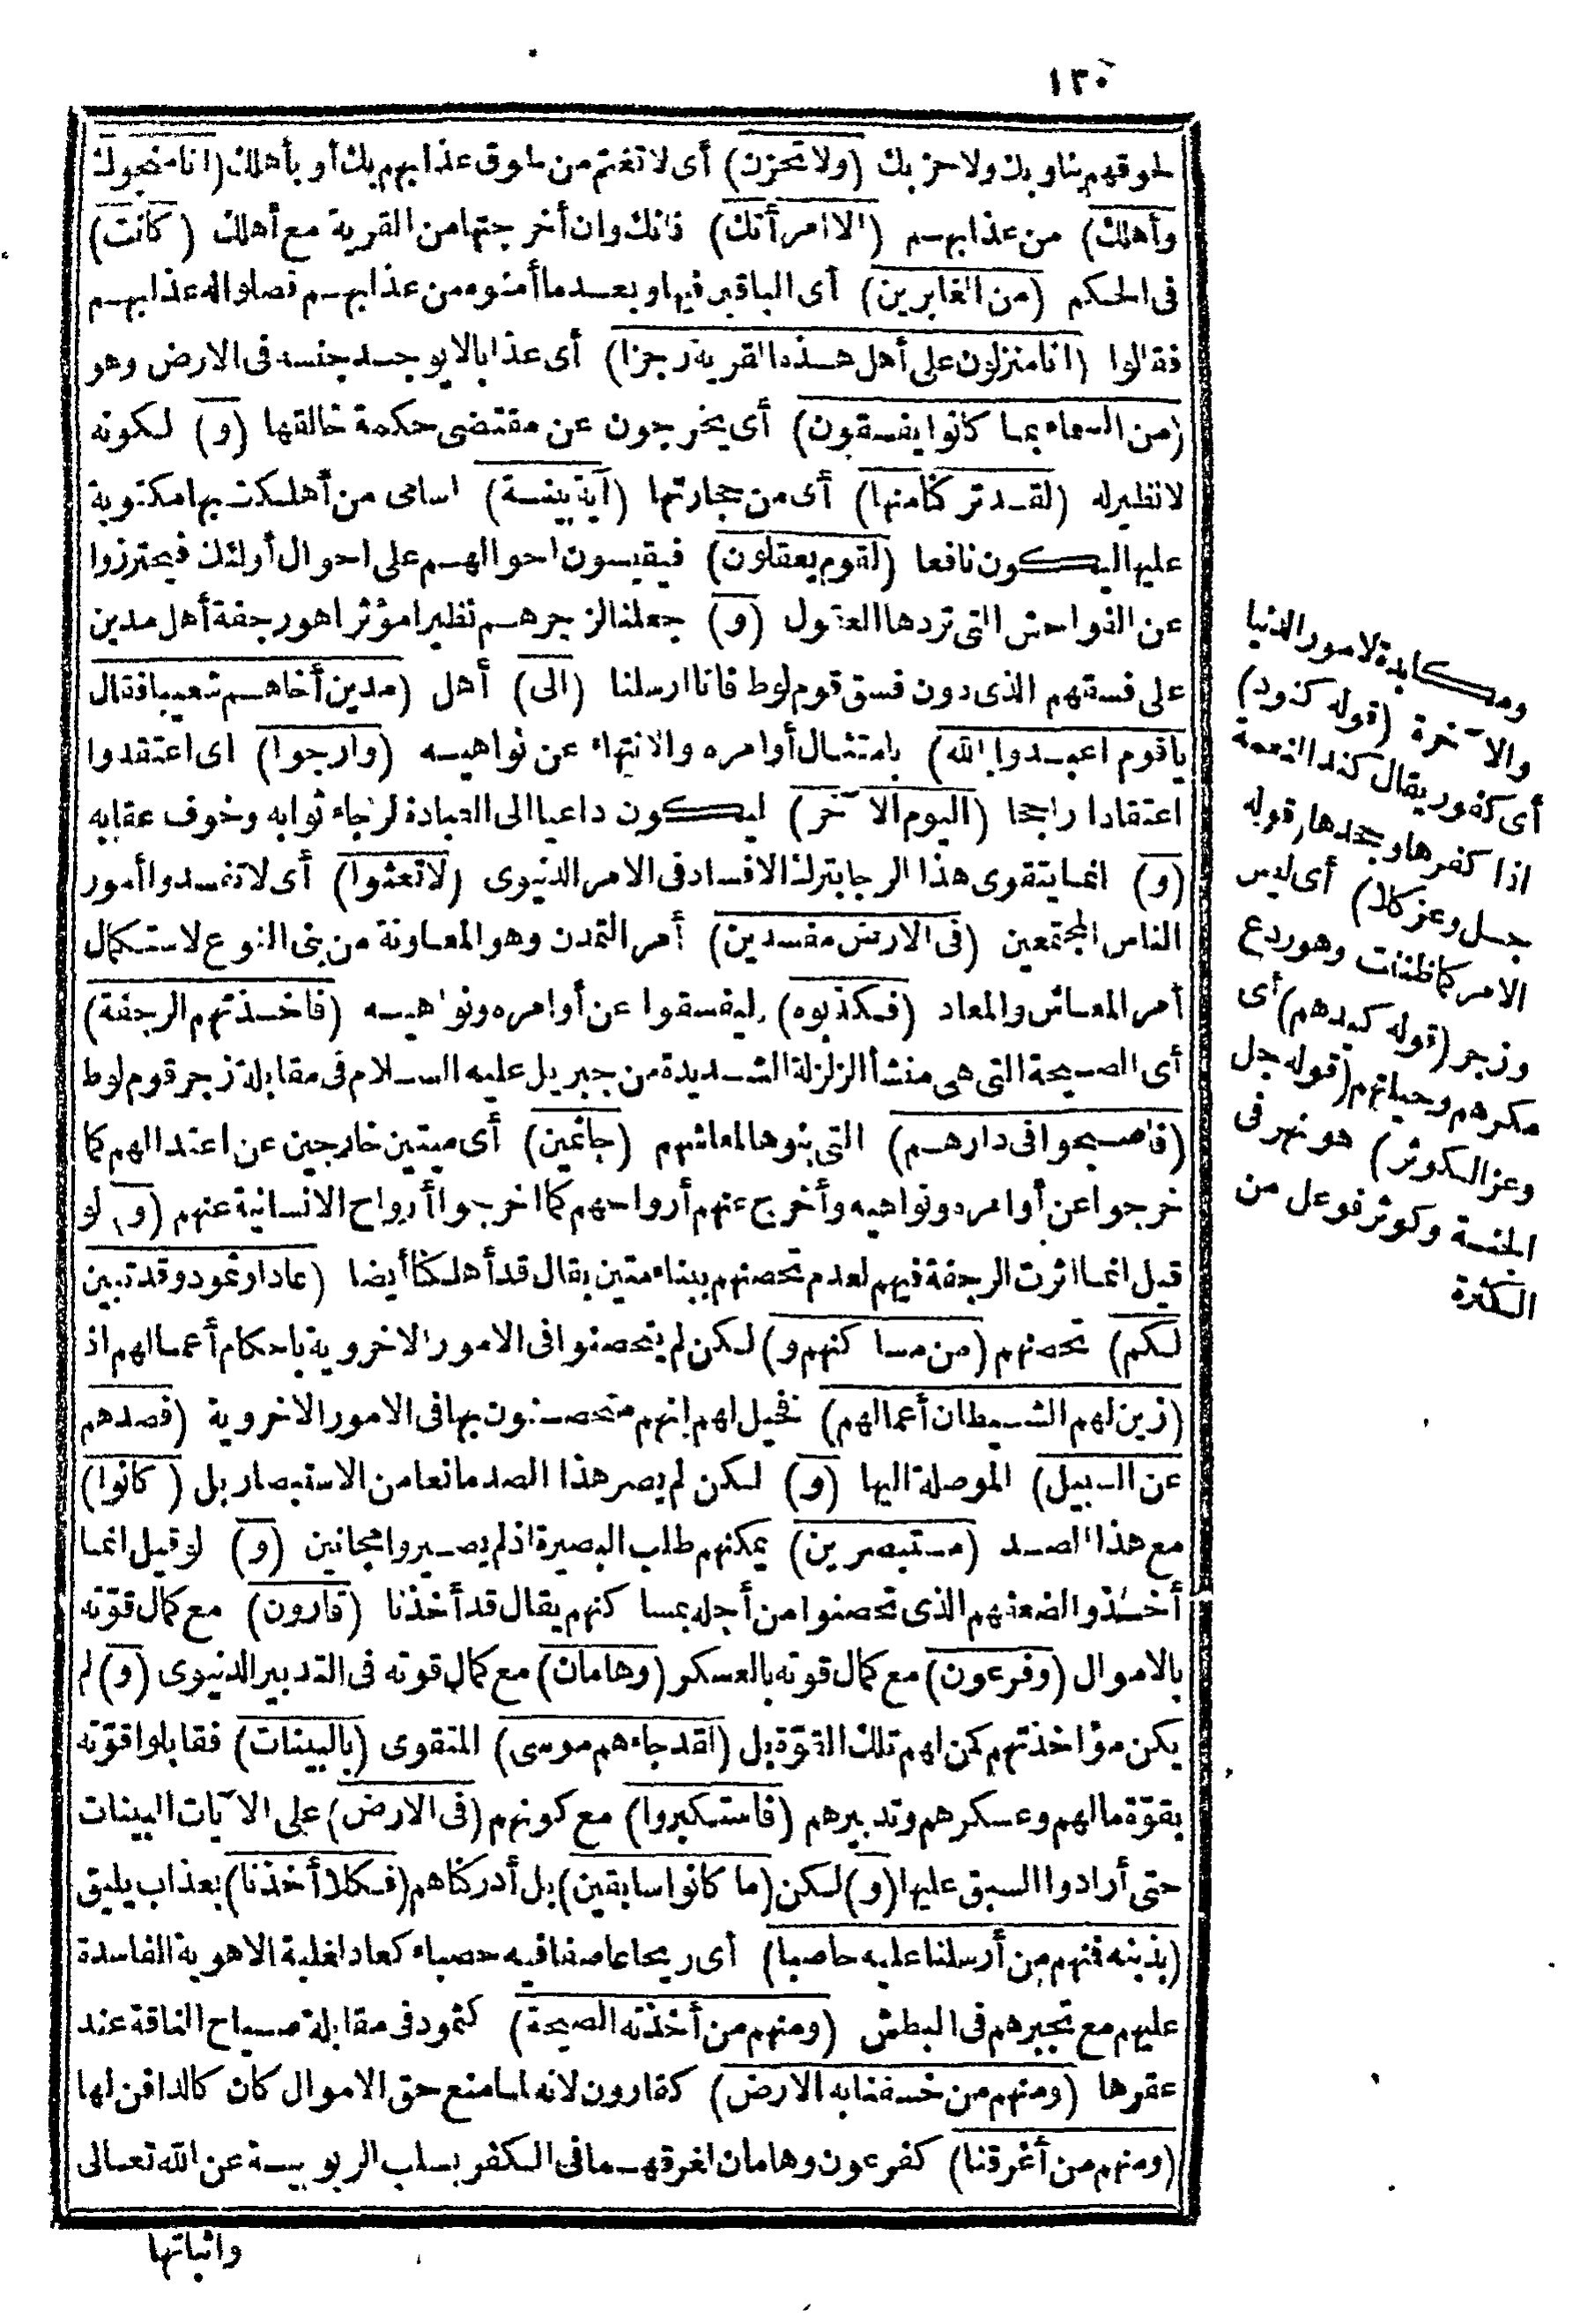 ١٣٠
لحوقهم بنا وبك ولا حز بك (ولا تحزن) أى لا تغتم من لحوق عذابهم بك أو بأهلك (انا منجوك
وأهلك) من عذابهم (الا امرأتك) فانك وان أخرجتها من القرية مع أهلك (كانت)
فى الحكم (من الغابرين) أى الباقين فيها وبعد ما أمنوه من عذابهم فصلوا له عذابهم
فقالوا (انا منزلون على أهل هذه القرية رجزا) أى عذابا لا يوجد جنسه فى الارض وهو
(من السماء بما كانوا يفسقون) أى يخرجون عن مقتضى حكمة خالقها (و) لكونه
لا نظير له (لقد تركنا منها) أى من حجارتها (آية بينة) اسامى من أهلكت بها مكتوبة
عليها ليكون نافعا (لقوم يعقلون) فيقيسون احوالهم على احوال أولئك فيحترزوا
عن الفواحش التى تردها العقول (و) جعلنا لزجرهم نظيرا مؤثرا هو رجفة أهل مدين
على فسقهم الذى دون فسق قوم لوط فانا ارسلنا (الى) أهل (مدين أخاهم شعيبا فقال
ياقوم اعبدوا الله) بامتثال أوامره والانتهاء عن نواهيه (وارجوا) اى اعتقدوا
اعتقادا راجحا (اليوم الآخر) ليكون داعيا الى العبادة لرجاء ثوابه وخوف عقابه
(و) انما يتقوى هذا الرجا بترك الافساد فى الامر الدنيوى (لا تعثوا) أى لا تفسدوا أمور
الناس المجتمعين (فى الارض مفسدين) أمر التمدن وهو المعاونة من بنى النوع لاستكمال
أمر المعاش والمعاد (فكذبوه) ليفسقوا عن أوامره ونواهيه (فاخذتهم الرجفة)
أى الصيحة التى هى منشأ الزلزلة الشديدة من جبريل عليه السلام فى مقابلة زجر قوم لوط
(فاصبحوا فى دارهم) التى بنوها لمعاشهم (جاثمين) أى ميتين خارجين عن اعتدالهم كما
خرجوا عن أوامره ونواهيه وأخرج عنهم أرواحهم كما اخرجوا أرواح الانسانية عنهم (و) لو
قيل انما اثرت الرجفة فيهم لعدم تحصنهم ببناء متين يقال قد أهلكنا أيضا (عادا وثمود وقد تبين
لكم) تحصنهم (من مساكنهم و) لكن لم يتحصنوا فى الامور الاخروية باحكام أعمالهم اذ
(زين لهم الشيطان أعمالهم) نخيل لهم انهم متحصنون بها فى الامور الاخروية (فصدهم
عن السبيل) الموصلة اليها (و) لكن لم يصر هذا الصد مانعا من الاستبصار بل (كانوا)
مع هذا الصد (مستبصرين) يمكنهم طلب البصيرة اذ لم يصيروا مجانين (و) لو قيل انما
أخذوا لضعفهم الذى تحصنوا من أجله بمساكنهم يقال قد أخذنا (قارون) مع كمال قوته
بالاموال (وفرعون) مع كمال قوته بالعسكر (وهامان) مع كمال قوته فى التدبير الدنيوى (و) لم
يكن مؤاخذتهم كمن لهم تلك القوة بل (لقد جاءهم موسى) المتقوى (بالبينات) فقابلوا قوته
بقوة مالهم وعسكرهم وتدبيرهم (فاستكبروا) مع كونهم (فى الارض) على الآيات البينات
حتى أرادوا السبق عليها (و) لكن (ما كانوا سابقين) بل أدركناهم (فكلا أخذنا) بعذاب يليق
(بذنبه فمنهم من أرسلنا عليه حاصبا) أى ريحا عاصفا فيه حصباء كعاد لغلبة الاهوية الفاسدة
عليهم مع تجبرهم فى البطش (ومنهم من أخذته الصيحة) كثمود فى مقابلة صياح الناقة عند
عقرها (ومنهم من خسفنا به الارض) كقارون لانه لما منع حق الاموال كان كالدافن لها
(ومنهم من أغرقنا) كفرعون وهامان لغرقهما فى الكفر بسلب الربوبية عن الله تعالى
واثباتها
ومكابدة لامور الدنيا
والآخرة (قوله كنود)
أى كفور يقال كند النعمة
اذا كفرها وجحدها (قوله
جل وعز كلا) أى ليس
الامر كما ظننت وهو ردع
وزجر (قوله كيدهم) أى
مكرهم وحيلتهم (قوله جل
وعز الكوثر) هو نهر فى
الجنة وكوثر فوعل من
الكثرة